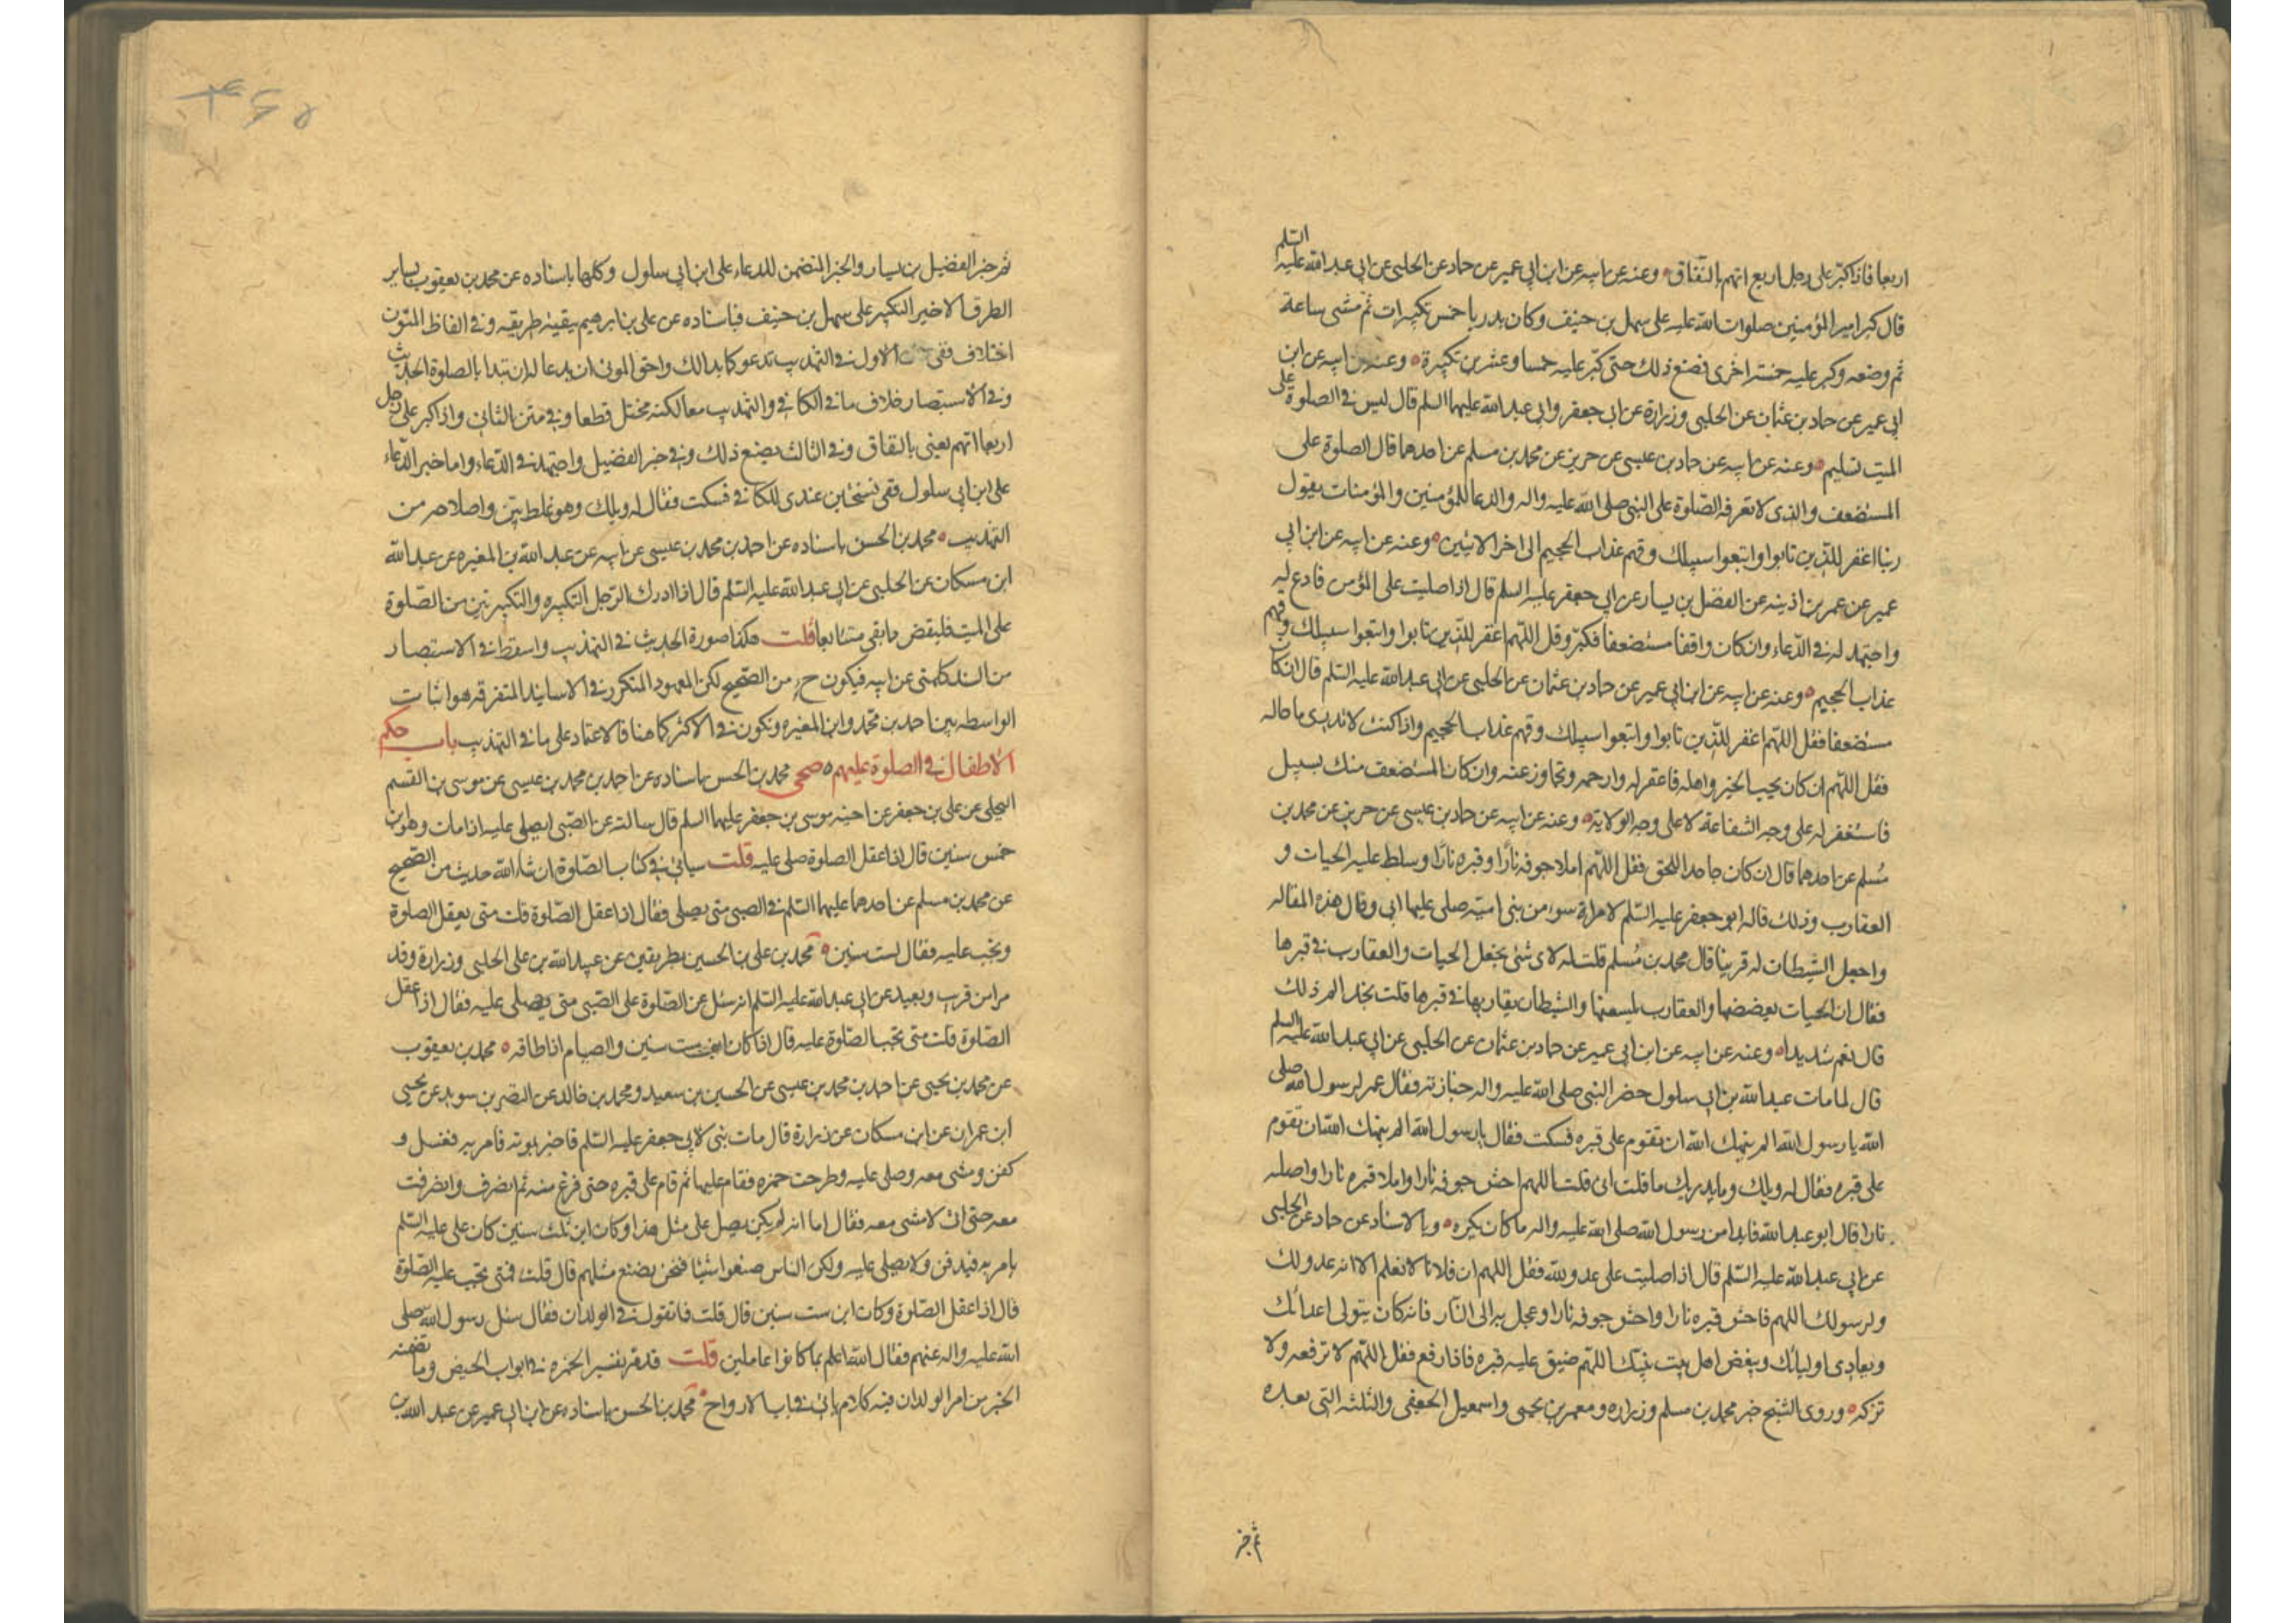 اربعا فاذا كبّر على رجل اربع اتهم بالنّفاق وعنه عن ابيه عن ابن ابي عمير عن حماد عن الحلبى عن ابي عبد الله عليه السّلم
قال كبر امير المؤمنين صلوات الله عليه على سهل بن حنيف وكان بدريا خمس تكبيرات ثم مشى ساعة
ثم وضعه وكبر عليه خمسة اخرى فصنع ذلك حتى كبّر عليه خمسا وعشرين تكبيرة وعنه عن ابيه عن ابن
ابي عمير عن حماد بن عثمان عن الحلبى وزرارة عن ابي جعفر وابي عبد الله عليهما السلم قال ليس في الصلوة على
الميت تسليم وعنه عن ابيه عن حماد بن عيسى عن حريز عن محمد بن مسلم عن احدهما قال الصلوة على
المستضعف والذى لا تعرفه الصّلوة على النبى صلى الله عليه واله والدعا للمؤمنين والمؤمنات يقول
ربنا اغفر للذين تابوا واتبعوا سبيلك وقهم عذاب الجحيم الى اخر الايتين وعنه عن ابيه عن ابن ابي
عمير عن عمر بن اذينه عن الفضل بن يسار عن ابي جعفر عليه السلم قال اذا صليت على المؤمن فادع له
واجتهد له في الدّعاء وان كان واقفا مستضعفا فكبّر وقل اللّهم اغفر للذين تابوا واتبعوا سبيلك وقهم
عذاب الجحيم وعنه عن ابيه عن ابن ابي عمير عن حماد بن عثمان عن الحلبى عن ابي عبد الله عليه السّلم قال ان كان
مستضعفا فقل اللّهم اغفر للذين تابوا واتبعوا سبيلك وقهم عذاب الجحيم واذا كنت لا تدرى ما حاله
فقل اللّهم ان كان يحب الخير واهله فاغفر له وارحمه وتجاوز عنه وان كان المستضعف منك بسبيل
فاستغفر له على وجه الشفاعة لا على وجه الولاية وعنه عن ابيه عن حماد بن عيسى عن حريز عن محمد بن
مُسلم عن احدهما قال ان كان جاحدا للحق فقل اللّهم املا جوفه نارًا وقبره نارًا وسلط عليه الحيات و
العقارب وذلك قاله ابو جعفر عليه السّلم لامراة سوء من بني امية صلى عليها ابي وقال هذه المقاله
واجعل الشيطان له قرينا قال محمد بن مُسلم قلت له لاى شئ يجعل الحيات والعقارب في قبرها
فقال ان الحيات يعضضها والعقارب يلسعنها والشيطان يقاربها في قبرها قلت تجد الم ذلك
قال نعم شديدا وعنه عن ابيه عن ابن ابي عمير عن حماد بن عثمان عن الحلبى عن ابي عبد الله عليه السلم
قال لما مات عبد الله بن ابي سلول حضر النبى صلى الله عليه واله جنازته فقال عمر لرسول الله صلى
الله يا رسول الله الم ينهك الله ان تقوم على قبره فسكت فقال يا رسول الله الم ينهك الله ان تقوم
على قبره فقال له ويلك وما يدريك ما قلت انى قلت اللهم احش جوفه نارا واملا قبره نارا واصله
نارا قال ابو عبد الله فابدا من رسول الله صلى الله عليه واله ما كان يكره وبالاسناد عن حماد عن الحلبى
عن ابي عبد الله عليه السّلم قال اذا صليت على عدو لله فقل اللهم ان فلانا لا نعلم الا انه عدو لك
ولرسولك اللهم فاحش قبره نارا واحش جوفه نارا وعجل به الى النّار فانه كان يتولى اعدائك
ويعادى اوليائك ويبغض اهل بيت نبيّك اللّهم ضيق عليه قبره فاذا رفع فقل اللّهم لا ترفعه ولا
تزكه وروى الشيخ خبر محمد بن مسلم وزراره ومعمر بن يحيى واسمعيل الجعفى والثلثه التى بعده
ثم خبر
ثم خبر الفضيل بن يسار والخبر المتضمن للدعاء على ابن ابي سلول وكلها باسناده عن محمد بن يعقوب بساير
الطرق الا خبر التكبير على سهل بن حنيف فباسناده عن على بن ابرهيم ببقية طريقه وفى الفاظ المتون
اختلاف ففى الاول في التهذيب تدعو كما بدا لك واحق الموتى ان يدعا له ان تبدا بالصلوة الحديث
وفي الاستبصار خلاف ما في الكافى والتهذيب معا لكنه مختل قطعا وفي متن الثانى واذا كبر على رجل
اربعا اتهم يعنى بالنفاق وفي الثالث يصنع ذلك وفي خبر الفضيل واجتهد في الدّعاء واما خبر الدّعاء
على ابن ابي سلول ففى نسختين عندى للكافى فسكت فقال له ويلك وهو غلط بيّن واصلاحه من
التهذيب محمد بن الحسن باسناده عن احمد بن محمد بن عيسى عن ابيه عن عبد الله بن المغيره عن عبد الله
ابن مسكان عن الحلبى عن ابي عبد الله عليه السّلم قال اذا ادرك الرّجل التكبيره والتكبيرتين من الصّلوة
على الميت فليقض ما بقى متتابعا قلت هكذا صورة الحديث في التهذيب واسقط في الاستبصار
من السند كلمتى عن ابيه فيكون ح من الصّحيح لكن المعهود المتكرر في الاسانيد المتفرقه هو اثبات
الواسطه بين احمد بن محمّد وابن المغيره وتكون في الاكثر كما هنا فالاعتماد على ما في التهذيب باب حكم
الاطفال في الصلوة عليهم صحى محمد بن الحسن باسناده عن احمد بن محمد بن عيسى عن موسى بن القسم
البجلى عن على بن جعفر عن اخيه موسى بن جعفر عليهما السلم قال سالته عن الصّبى ايصلى عليه اذا مات وهو ابن
خمس سنين قال اذا عقل الصلوة صلى عليه قلت سياتى في كتاب الصّلوة ان شاء الله حديث من الصّحيح
عن محمد بن مسلم عن احدهما عليهما السّلم في الصبى متى يصلى فقال اذا عقل الصّلوة قلت متى يعقل الصلوة
وتجب عليه فقال لست سنين محمد بن على بن الحسين بطريقين عن عبيد الله بن على الحلبى وزرارة وقد
مرا من قرب وبعيد عن ابي عبد الله عليه السّلم انه سئل عن الصّلوة على الصّبى متى يصلى عليه فقال اذا عقل
الصّلوة قلت متى تجب الصّلوة عليه قال اذا كان ابن ست سنين والصيام اذا طاقه محمد بن يعقوب
عن محمد بن يحيى عن احمد بن محمد بن عيسى عن الحسين بن سعيد ومحمد بن خالد عن النضر بن سويد عن يحيى
ابن عمران عن ابن مسكان عن زرارة قال مات بنى لابي جعفر عليه السّلم فاخبر بموته فامر به فغسل و
كفن ومشى معه وصلى عليه وطرحت خمره فقام عليها ثم قام على قبره حتى فرغ منه ثم انصرف وانصرفت
معه حتى انى لامشى معه فقال اما انه لم يكن يصلى على مثل هذا وكان ابن ثلث سنين كان على عليه السّلم
يامر به فيدفن ولا يصلى عليه ولكن الناس صنعوا شيئا فنحن نصنع مثلهم قال قلت فمتى تجب عليه الصّلوة
قال اذا عقل الصّلوة وكان ابن ست سنين قال قلت فما تقول في الولدان فقال سئل رسول الله صلى
الله عليه واله عنهم فقال الله اعلم بما كانوا عاملين قلت قد مر تفسير الخمره في ابواب الحيض وما تضمنه
الخبر من امر الولدان فيه كلام ياتى في باب الارواح محمد بن الحسن باسناده عن ابن ابي عمير عن عبد الله بن